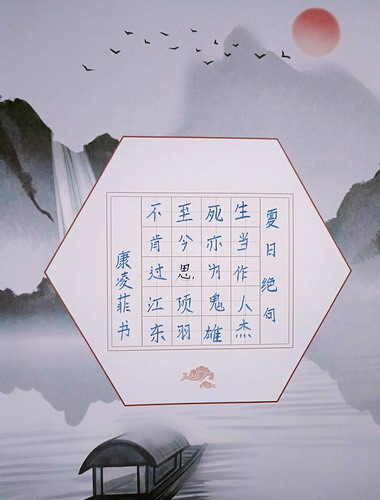 夏日绝句
生当作人杰
死亦为鬼雄
至兮思项羽
不肯过江东
康凌菲书